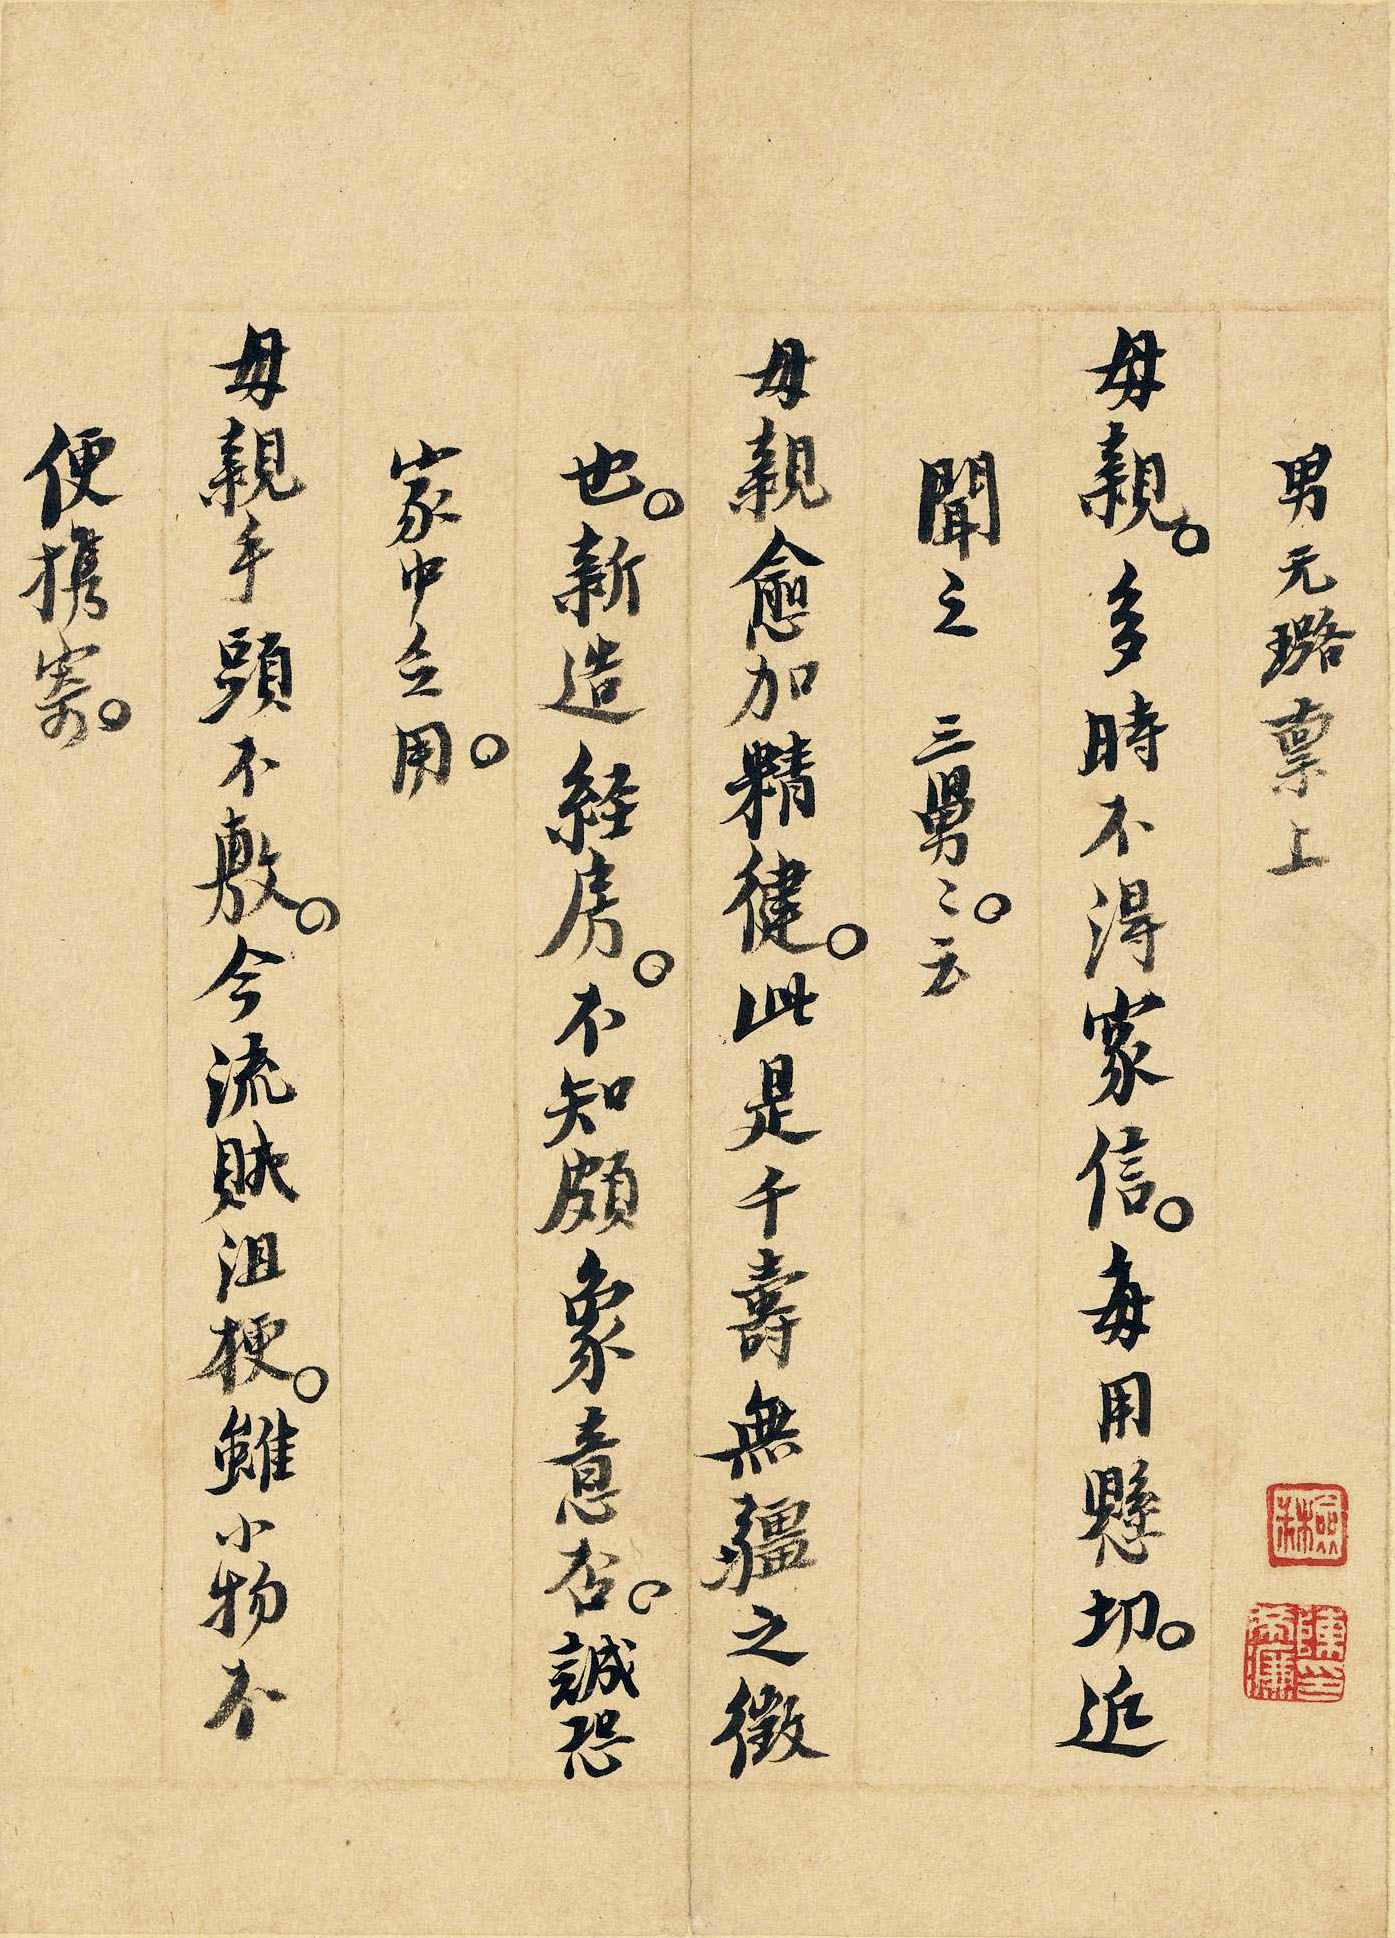 男元璐稟上
母親。多時不得家信。每用懸切。近
聞之 三舅〻。云
母親愈加精健。此是千壽無疆之徵
也。新造経房。不知頗象意否。誠恐
家中乏用。
母親手頭不敷。今流賊沮梗。雖小物不
便携寄。